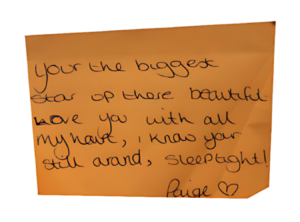 your the biggest
star up there beautiful
Love you with all
my heart, i know your
still around, sleeptight!
Paige ♡